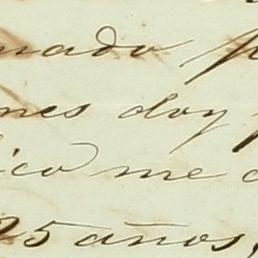 nado p
nes doy f
ico me d
25 años,